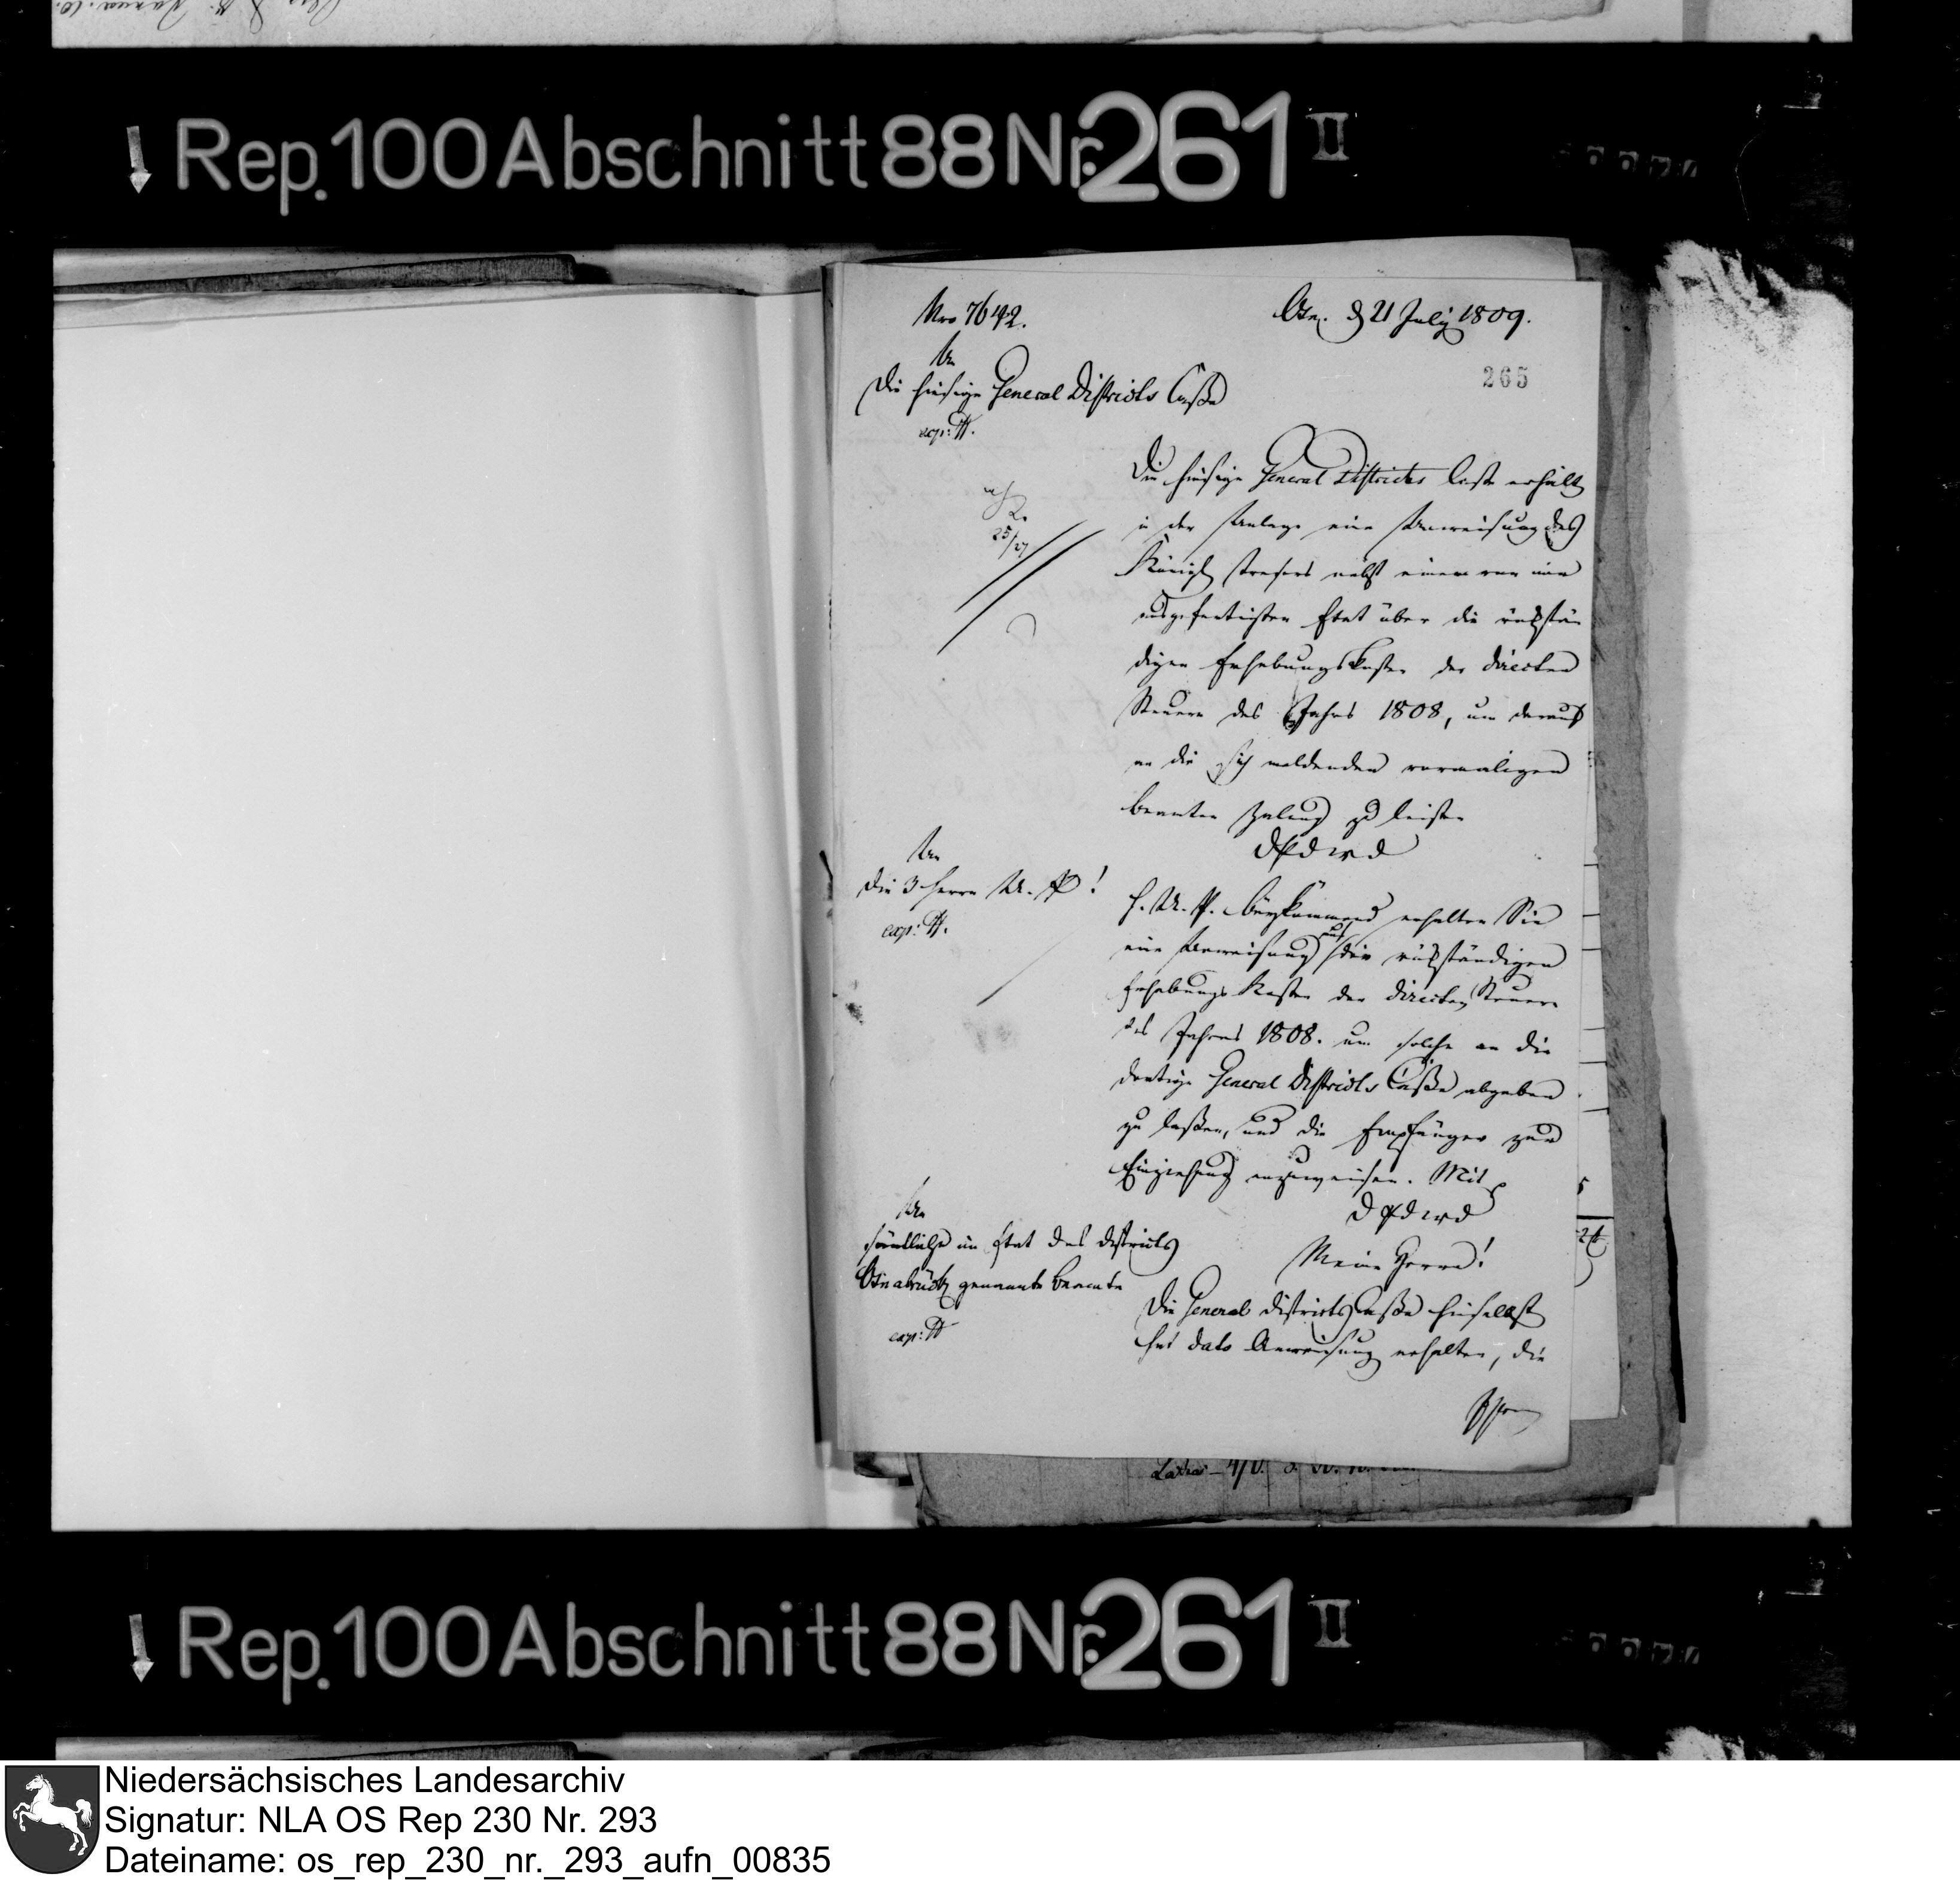 Rep. 100 Abschnitt 88 Nr. 261 II
Nro 7642.
Osn. d 21 July 1809.
265
An
die hiesige General Districts Casse
exp:
Die hiesige General Districts Casse erhält
in der Anlage eine Anweisung des
Königl Tresors nebst einem von mir
ausgefertigten Etat über die rückstän
digen Erhebungskosten der directen
Steuern des Jahrs 1808, um darauf
an die sich meldenden vormaligen
Beamten Zalung zu leisten
An
die 3 Herrn U. P!
exp:
H. U. P. beykommend erhalten Sie
eine Anweisung auf die rückständigen
Erhebungs Kosten der directen Steuern
des Jahres 1808. um solche an die
dortige General Districts Casse abgeben
zu lassen, und die Empfänger zur
Einziehung anzuweisen. Mit
An
sämtliche im Etat des Districts
Osnabrück genannte Beamte
exp:
Meine Herrn!
Die General Districts Casse hieselbst
hat dato Anweisung erhalten, die
Rep. 100 Abschnitt 88 Nr. 261 II
Niedersächsisches Landesarchiv
Signatur: NLA OS Rep 230 Nr. 293
Dateiname: os_rep_230_nr._293_aufn_00835